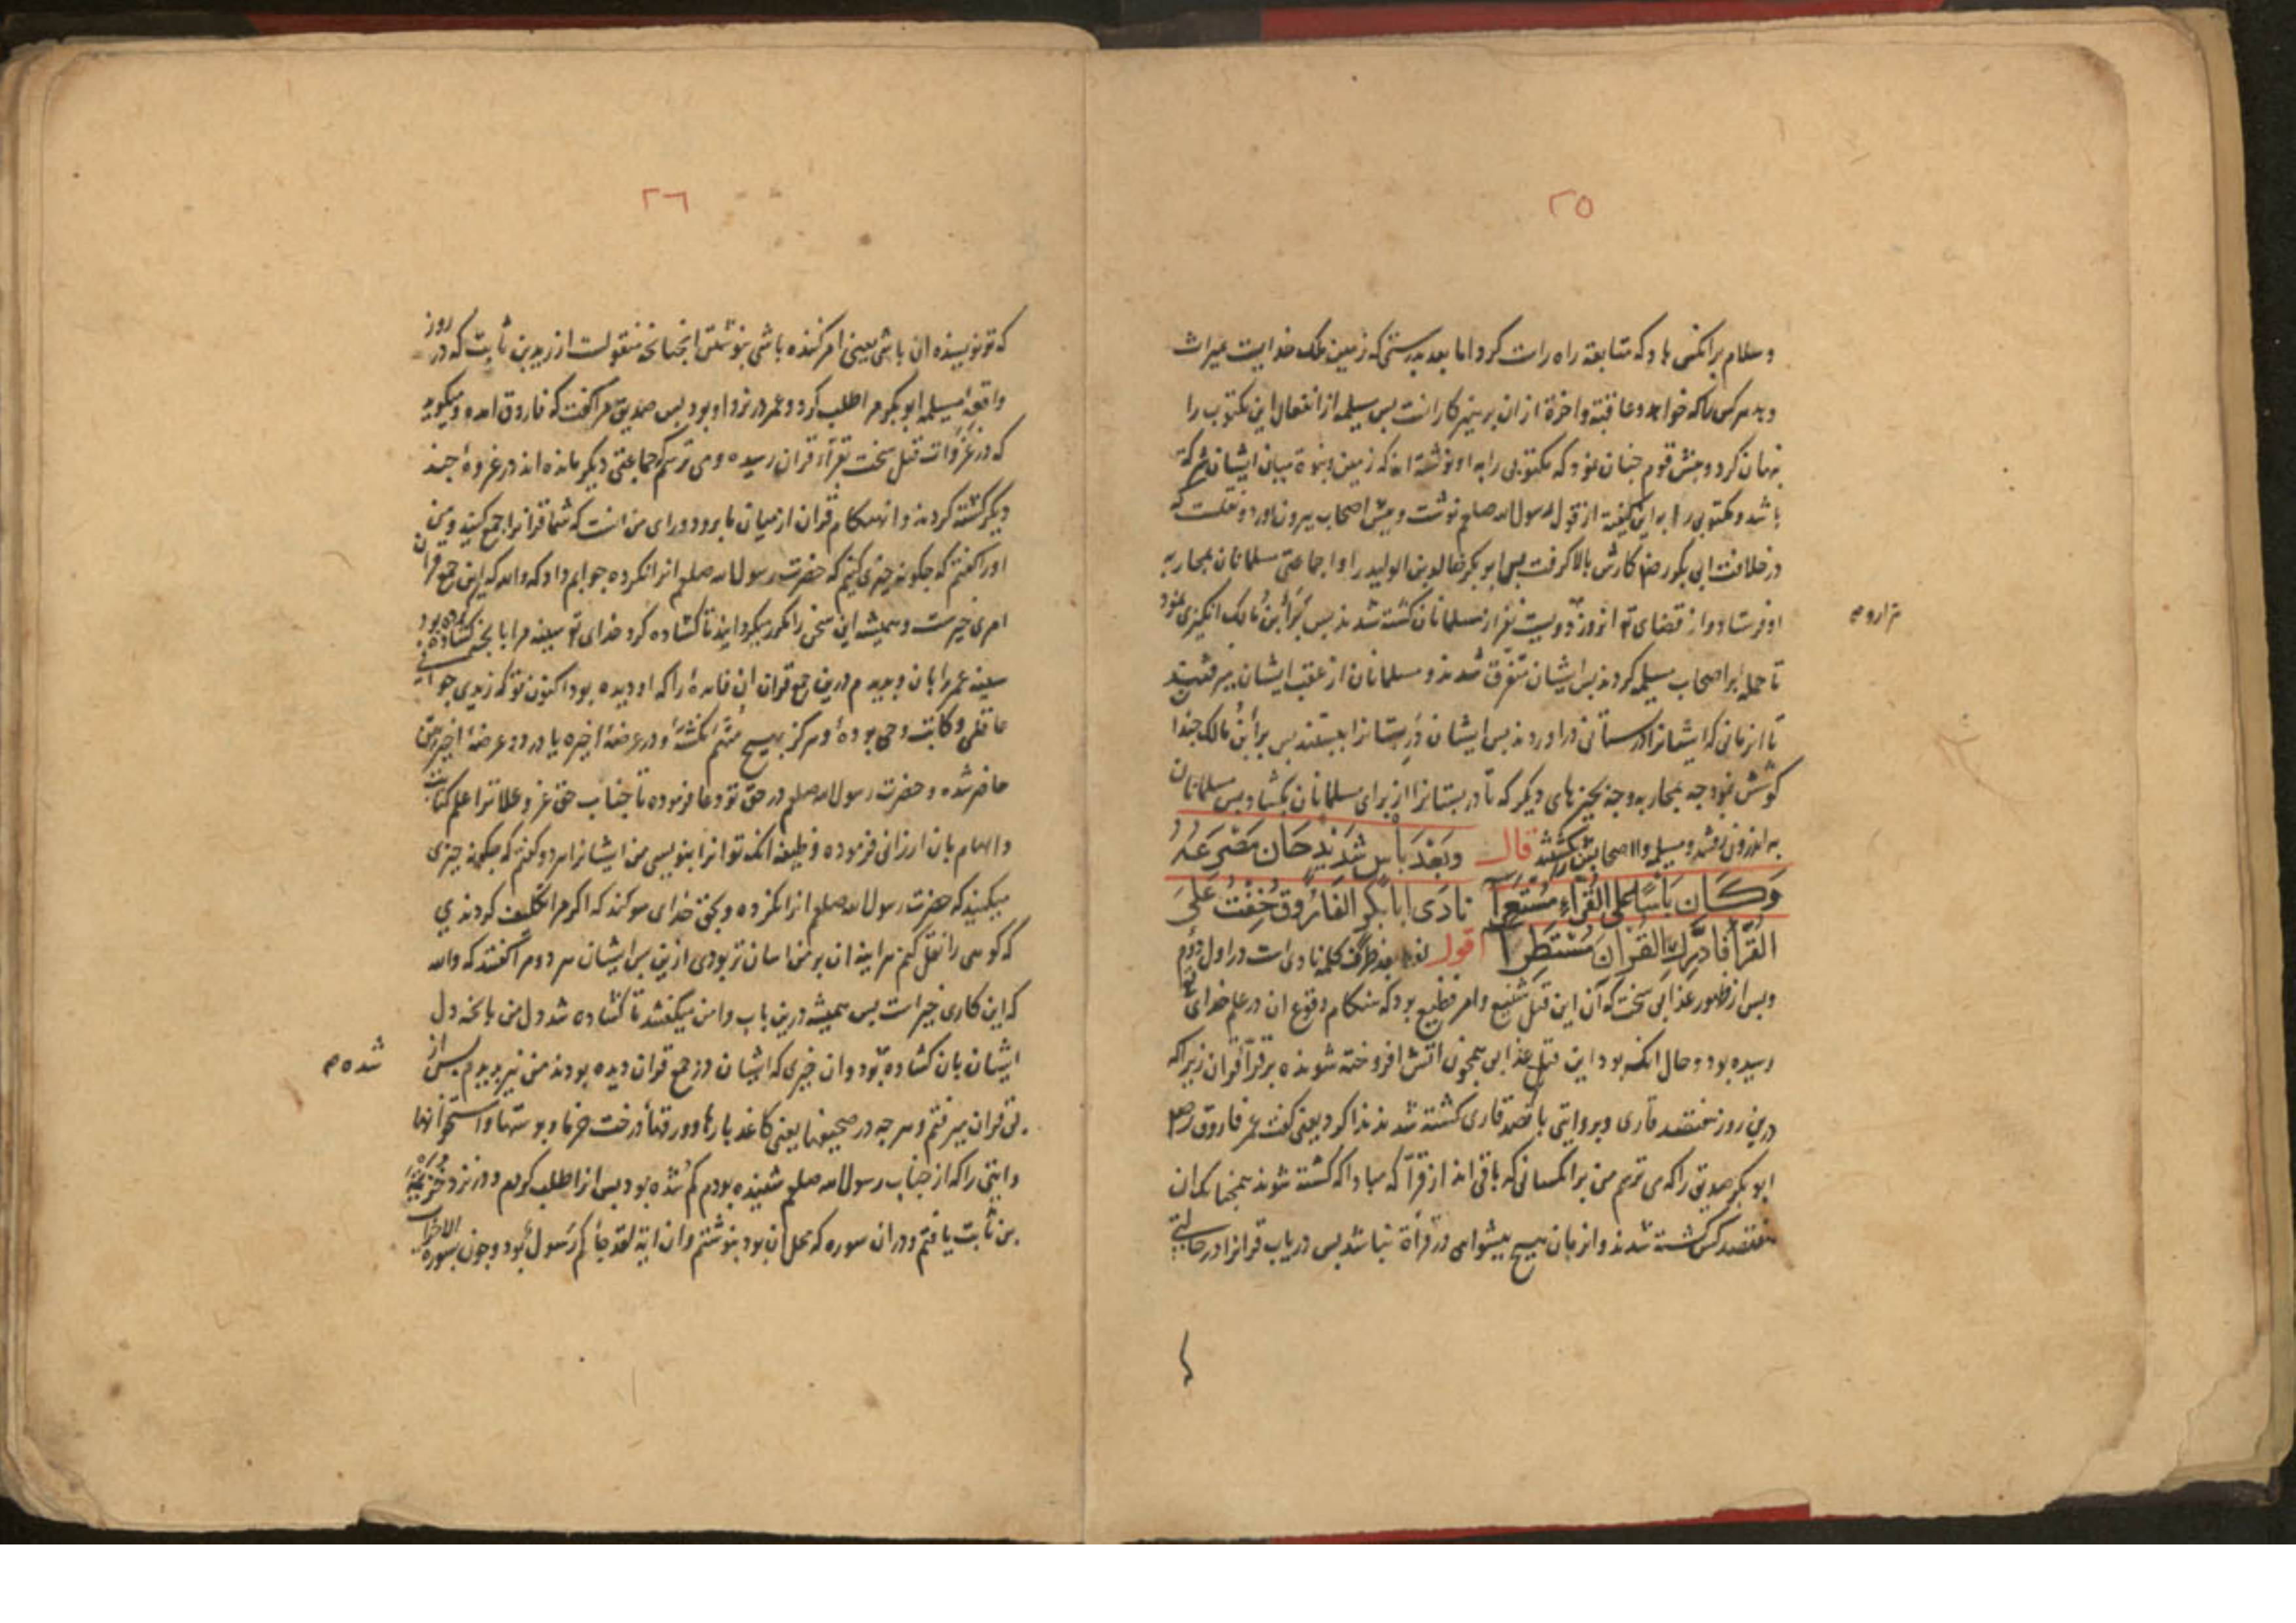 ٢٥
و سلام برانکس باد که متابعة راه راست کرد اما بعد بدرستی که زمین ملک خدایست میراث
و بهر کس که خواهد و عاقبة و اخرة ازان پرهیزکارانست پس مسیلمه از انفعال این مکتوب را
پنهان کرد و پیش قوم چنان نمود که مکتوبی را به او نوشته اند که زمین و نبوة میان ایشان شرکة
باشد و مکتوبی را به این کیفیة از قول رسول الله صلعم نوشت و پیش اصحاب بیرون اورد و نقلست که
در خلافت ابی بکر رضه کارش بالا گرفت پس ابو بکر خالد بن الولید را و اجماعتی مسلمانان بمحاربه
او فرستاد و از قضای تع انروز دویست نفر از مسلمانان کشته شدند پس برأ بن مالک انگیزی نمود
تا حمله بر اصحاب مسیلمه کردند پس ایشان متفرق شدند و مسلمانان از عقب ایشان میرفتند
تا انزمانی که ایشانرا در بستانی در اوردند پس ایشان در بستانرا ببستند پس برأ بن مالک چندا
کوشش نمود چه بمحاربه و چه بچیزهای دیگر که تا در بستانرا از برای مسلمانان بکشاد پس مسلمانان
به اندرون رفتند و مسیلمه و اصحابش را بکشتند قال وَبَعْدَ بَأْسٍ شَدِیدٍ حَانَ مَصْرَعُهُ
وَكَانَ بَأْسًا عَلَی القُرَّاءِ مُسْتَعِرَا نَادَی أَبَا بَكْرٍ الفَارُوقُ خِفْتُ عَلَی
القُرَّاءِ فَادَّرِكِ القُرْآنَ مُسْتَطِرَا اقول لفظ بعد ظرف کلمه نادی است در اول دوم
و پس از ظهور عذابی سخت که آن این قتل شنیع و امر فظیع بود که هنکام وقوع ان در علم خدای تع
رسیده بود و حال انکه بود این قتل عذابی همچون اتش افروخته شونده بر قرآء قران زیرا که
درین روز هفتصد قاری و بروایتی پانصد قاری کشته شدند ندا کرد یعنی گفت عمر فاروق رضه
ابو بکر صدیق را که می ترسم من بر انکسانی که باقی اند از قرآ که مبادا که کشته شوند همچنانکه ان
هفتصد کس کشته شدند و انزمان هیچ پیشوایی در قرأة نباشد پس دریاب قرانرا در حالتی
٢٦
که تو نویسنده ان باشی یعنی امر کننده باشی بنوشتن انچنانچه منقولست از زید بن ثابت که در روز
واقعه مسیلمه ابو بکر مرا طلب کرد و عمر در نزد او بود پس صدیق مرا گفت که فاروق امده و میگوید
که در غزوات قتل سخت بقرآء قران رسیده و می ترسم که جماعتی دیگر مانده اند در غزوهٔ چند
دیگر کشته گردند و انهنگام قران از میان ما برود و رای من انست که شما قرانرا جمع کنید و من
اورا گفتم که چگونه چیزی کنیم که حضرت رسول الله صلعم انرا نکرده جوابم داد که والله که این جمع قران
امری خیرست و همیشه این سخن را مکرر میگردانید تا گشاده کرد خدای تع سینه مرا بانچه گشاده بود
سینه عمر را بان و دیدم درین جمع قران ان فایدهٔ را که او دیده بود اکنون تو که زیدی جوانی
عاقلی و کاتب وحی بودهٔ و هرگز بهیچ متهم نگشتهٔ و در عرضهٔ اخیره یا در دو عرضهٔ اخیرتین
حاضر شده و حضرت رسول الله صلعم در حق تو دعا فرموده تا جناب حق عز و علا ترا علم کتابت
و الهام بان ارزانی فرموده وظیفه انکه تو انرا بنویسی من ایشانرا هر دو گفتم که چگونه چیزی
میکنید که حضرت رسول الله صلعم انرا نکرده و بحق خدای سوگند که اگر مرا تکلیف کردندی
که کوهی را نقل کنم هراینه ان بر من اسان تر بودی ازین پس ایشان هر دو مرا گفتند که والله
که این کاری خیر است پس همیشه درین باب وامن میگفتند تا گشاده شد دل من بانچه دل
ایشان بان گشاده بود و ان خیری که ایشان در جمع قران دیده بودند من نیز دیدم پس از
پی قران میرفتم و هر چه در صحیفها یعنی کاغذ پارها و ورقهأ درخت خرما و پوستها و استخوانها
و ایتی را که از جناب رسول الله صلعم شنیده بودم گم شده بود پس انرا طلب کردم و در نزد خزیمة
بن ثابت یافتم و دران سوره که محل ان بود بنوشتم و ان ایة لقد جأکم رسول بود و چون بسوره الاحزاب
شده صح